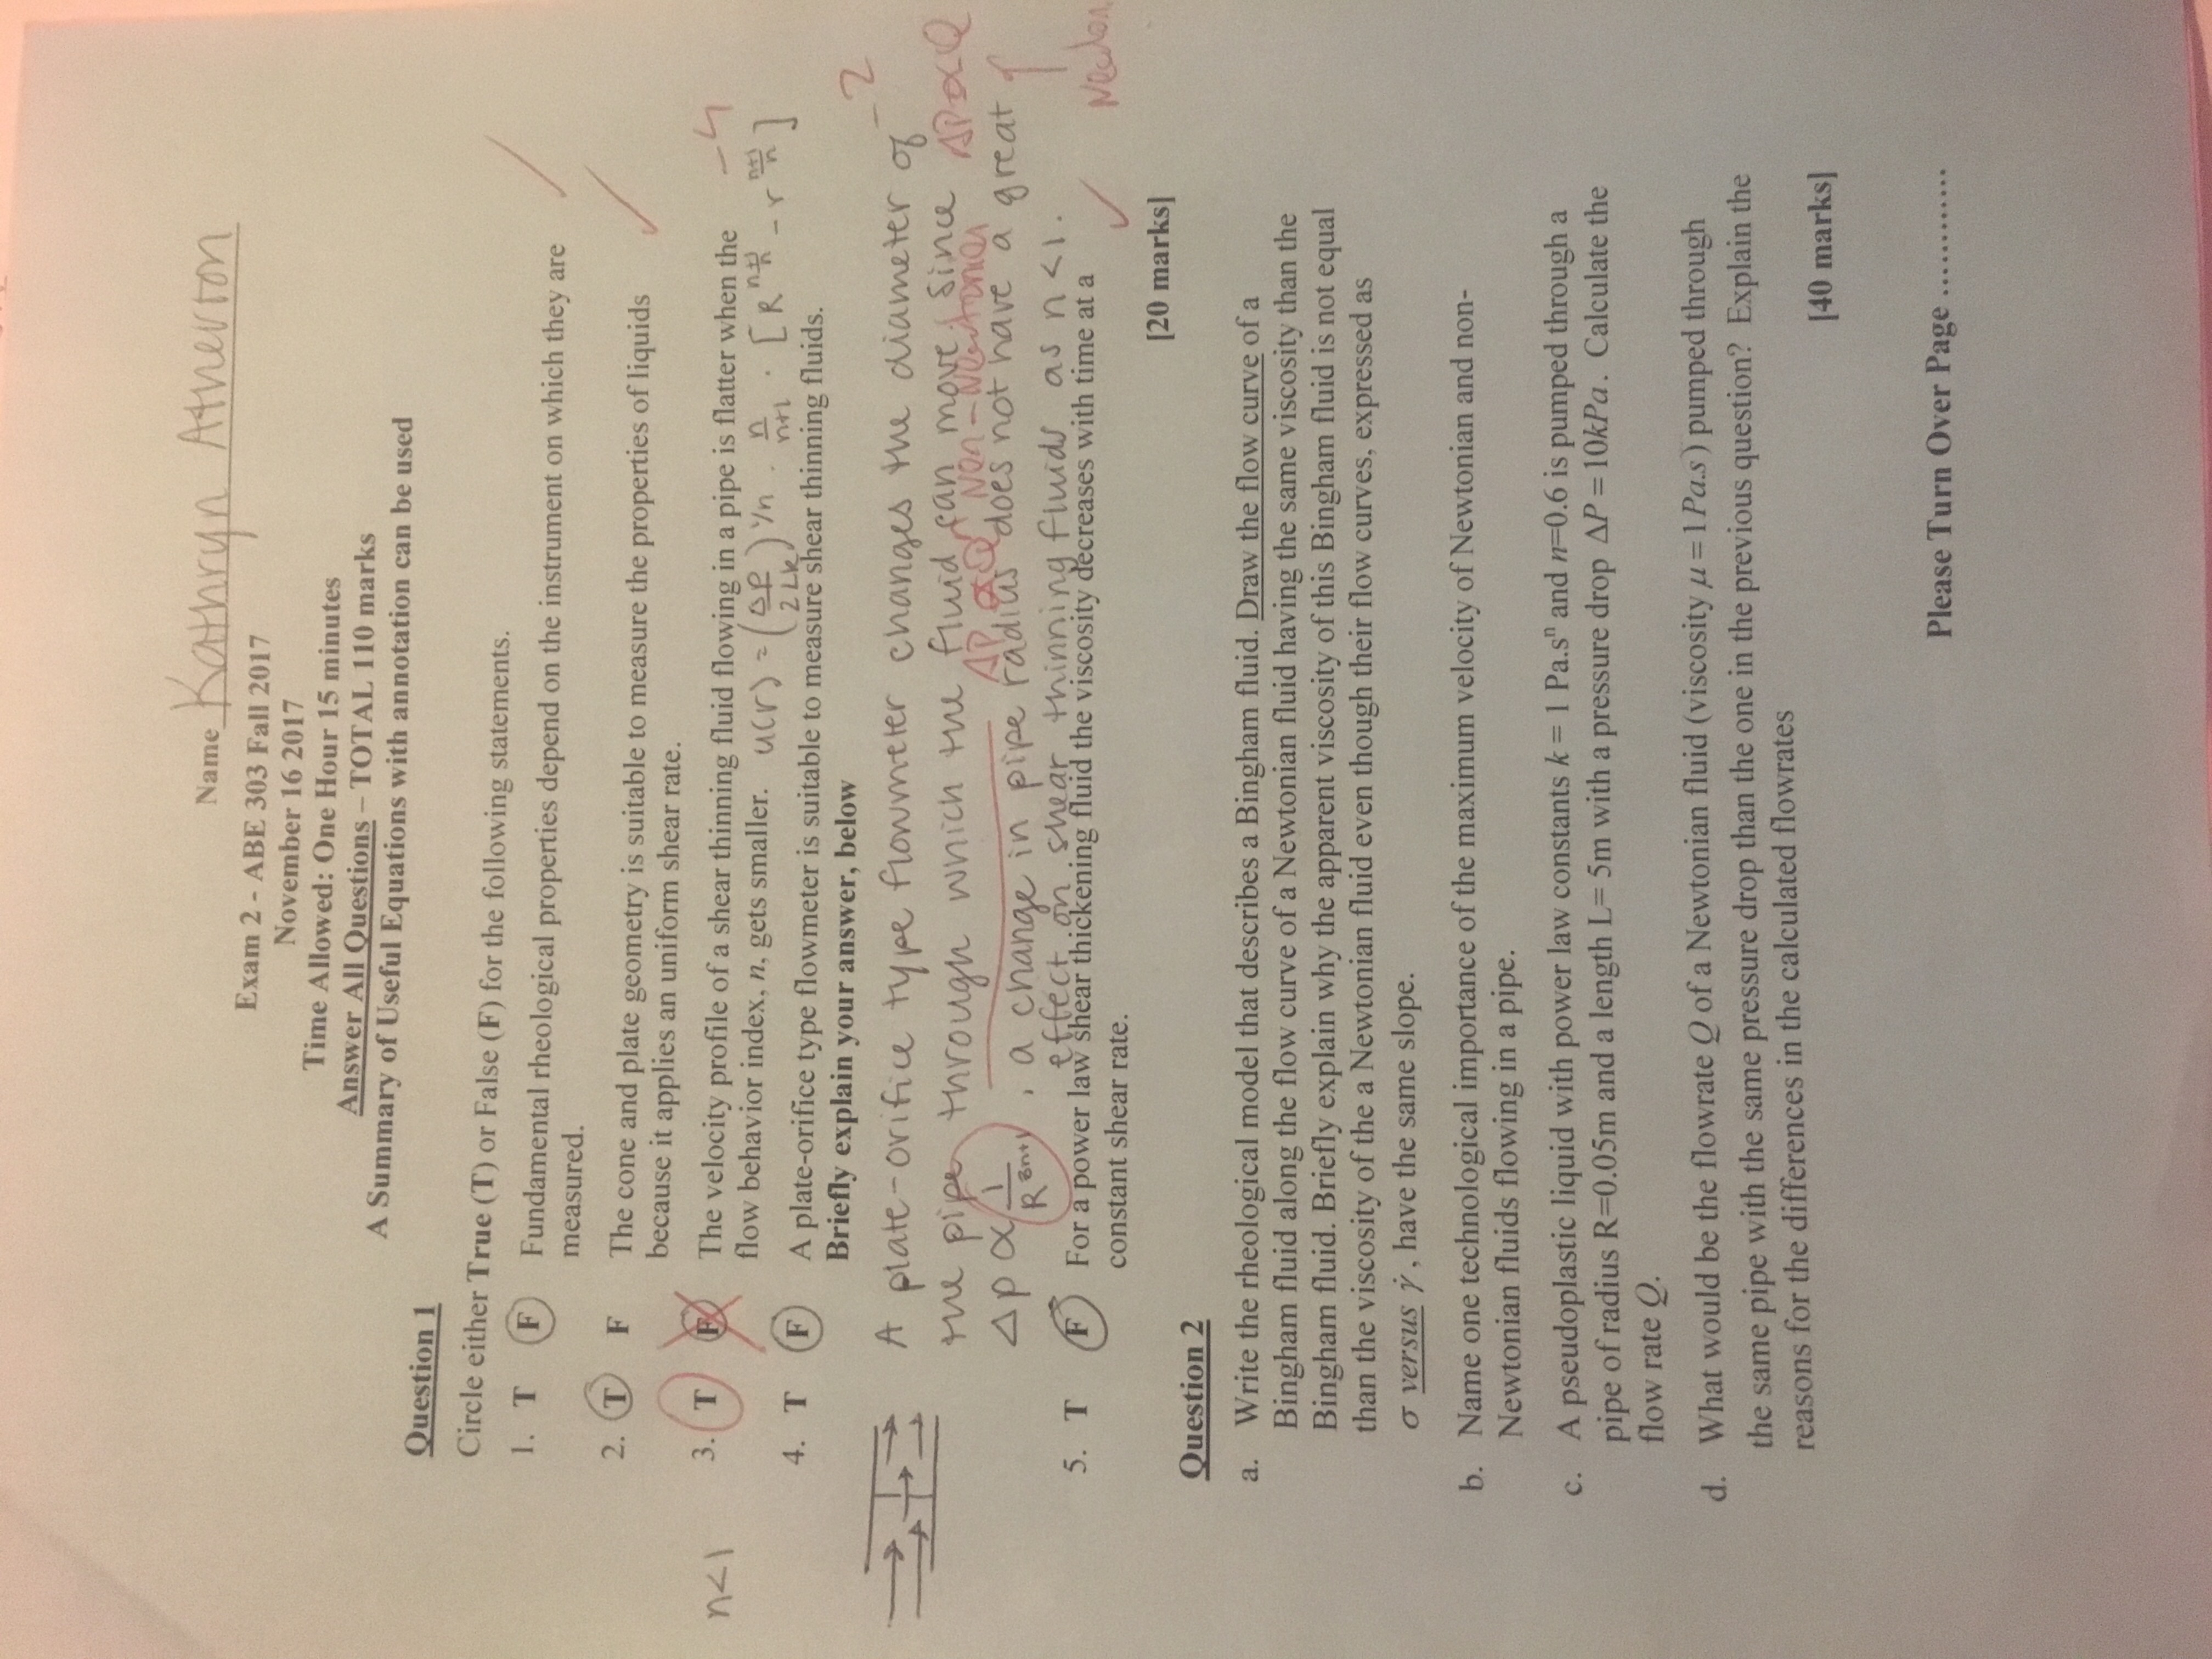 Name Kathryn Atherton
Exam 2 - ABE 303 Fall 2017
November 16 2017
Time Allowed: One Hour 15 minutes
Answer All Questions – TOTAL 110 marks
A Summary of Useful Equations with annotation can be used
Question 1
Circle either True (T) or False (F) for the following statements.
1. T F Fundamental rheological properties depend on the instrument on which they are
measured.
2. T F The cone and plate geometry is suitable to measure the properties of liquids
because it applies an uniform shear rate.
n<1 3. T F The velocity profile of a shear thinning fluid flowing in a pipe is flatter when the -4
flow behavior index, n, gets smaller. u(r) = (ΔP/2Lk)^1/n · n/n+1 · [R^n+1/n - r^n+1/n]
4. T F A plate-orifice type flowmeter is suitable to measure shear thinning fluids.
Briefly explain your answer, below
-2
A plate-orifice type flowmeter changes the diameter of
the pipe through which the fluid can move. Since ΔP∝Q
ΔP ∝ Q^n Non-Newtonian
Δp ∝ 1/R^3n+1, a change in pipe radius does not have a great
effect on shear thinning fluids as n<1.
5. T F For a power law shear thickening fluid the viscosity decreases with time at a
constant shear rate.
[20 marks]
Question 2
a. Write the rheological model that describes a Bingham fluid. Draw the flow curve of a
Bingham fluid along the flow curve of a Newtonian fluid having the same viscosity than the
Bingham fluid. Briefly explain why the apparent viscosity of this Bingham fluid is not equal
than the viscosity of the a Newtonian fluid even though their flow curves, expressed as
σ versus γ̇, have the same slope.
b. Name one technological importance of the maximum velocity of Newtonian and non-
Newtonian fluids flowing in a pipe.
c. A pseudoplastic liquid with power law constants k = 1 Pa.sⁿ and n=0.6 is pumped through a
pipe of radius R=0.05m and a length L= 5m with a pressure drop ΔP = 10kPa. Calculate the
flow rate Q.
d. What would be the flowrate Q of a Newtonian fluid (viscosity μ = 1 Pa.s) pumped through
the same pipe with the same pressure drop than the one in the previous question? Explain the
reasons for the differences in the calculated flowrates
[40 marks]
Please Turn Over Page ............